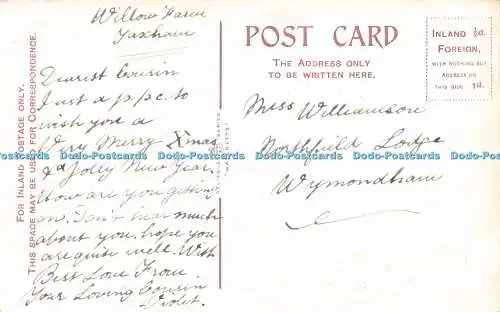 Willow Farm
Yaxham
Dearest Cousin
Just a p/pc. to
wish you a
Very Merry Xmas
&d Jolly New Year.
How are you getting
on. Don't hear much
about you, hope you
are quite well. With
Best Love From
Your Loving Cousin
Violet.
FOR INLAND POSTAGE ONLY.
THIS SPACE MAY BE USED FOR CORRESPONDENCE.
POST CARD
THE ADDRESS ONLY
TO BE WRITTEN HERE.
INLAND ½d.
FOREIGN,
WITH NOTHING BUT
ADDRESS ON
THIS SIDE 1d.
Miss Williamson
Northfield Lodge
Wymondham
Dodo-Postcards Dodo-Postcards Dodo-Postcards Dodo-Postcards Dodo-Postcards